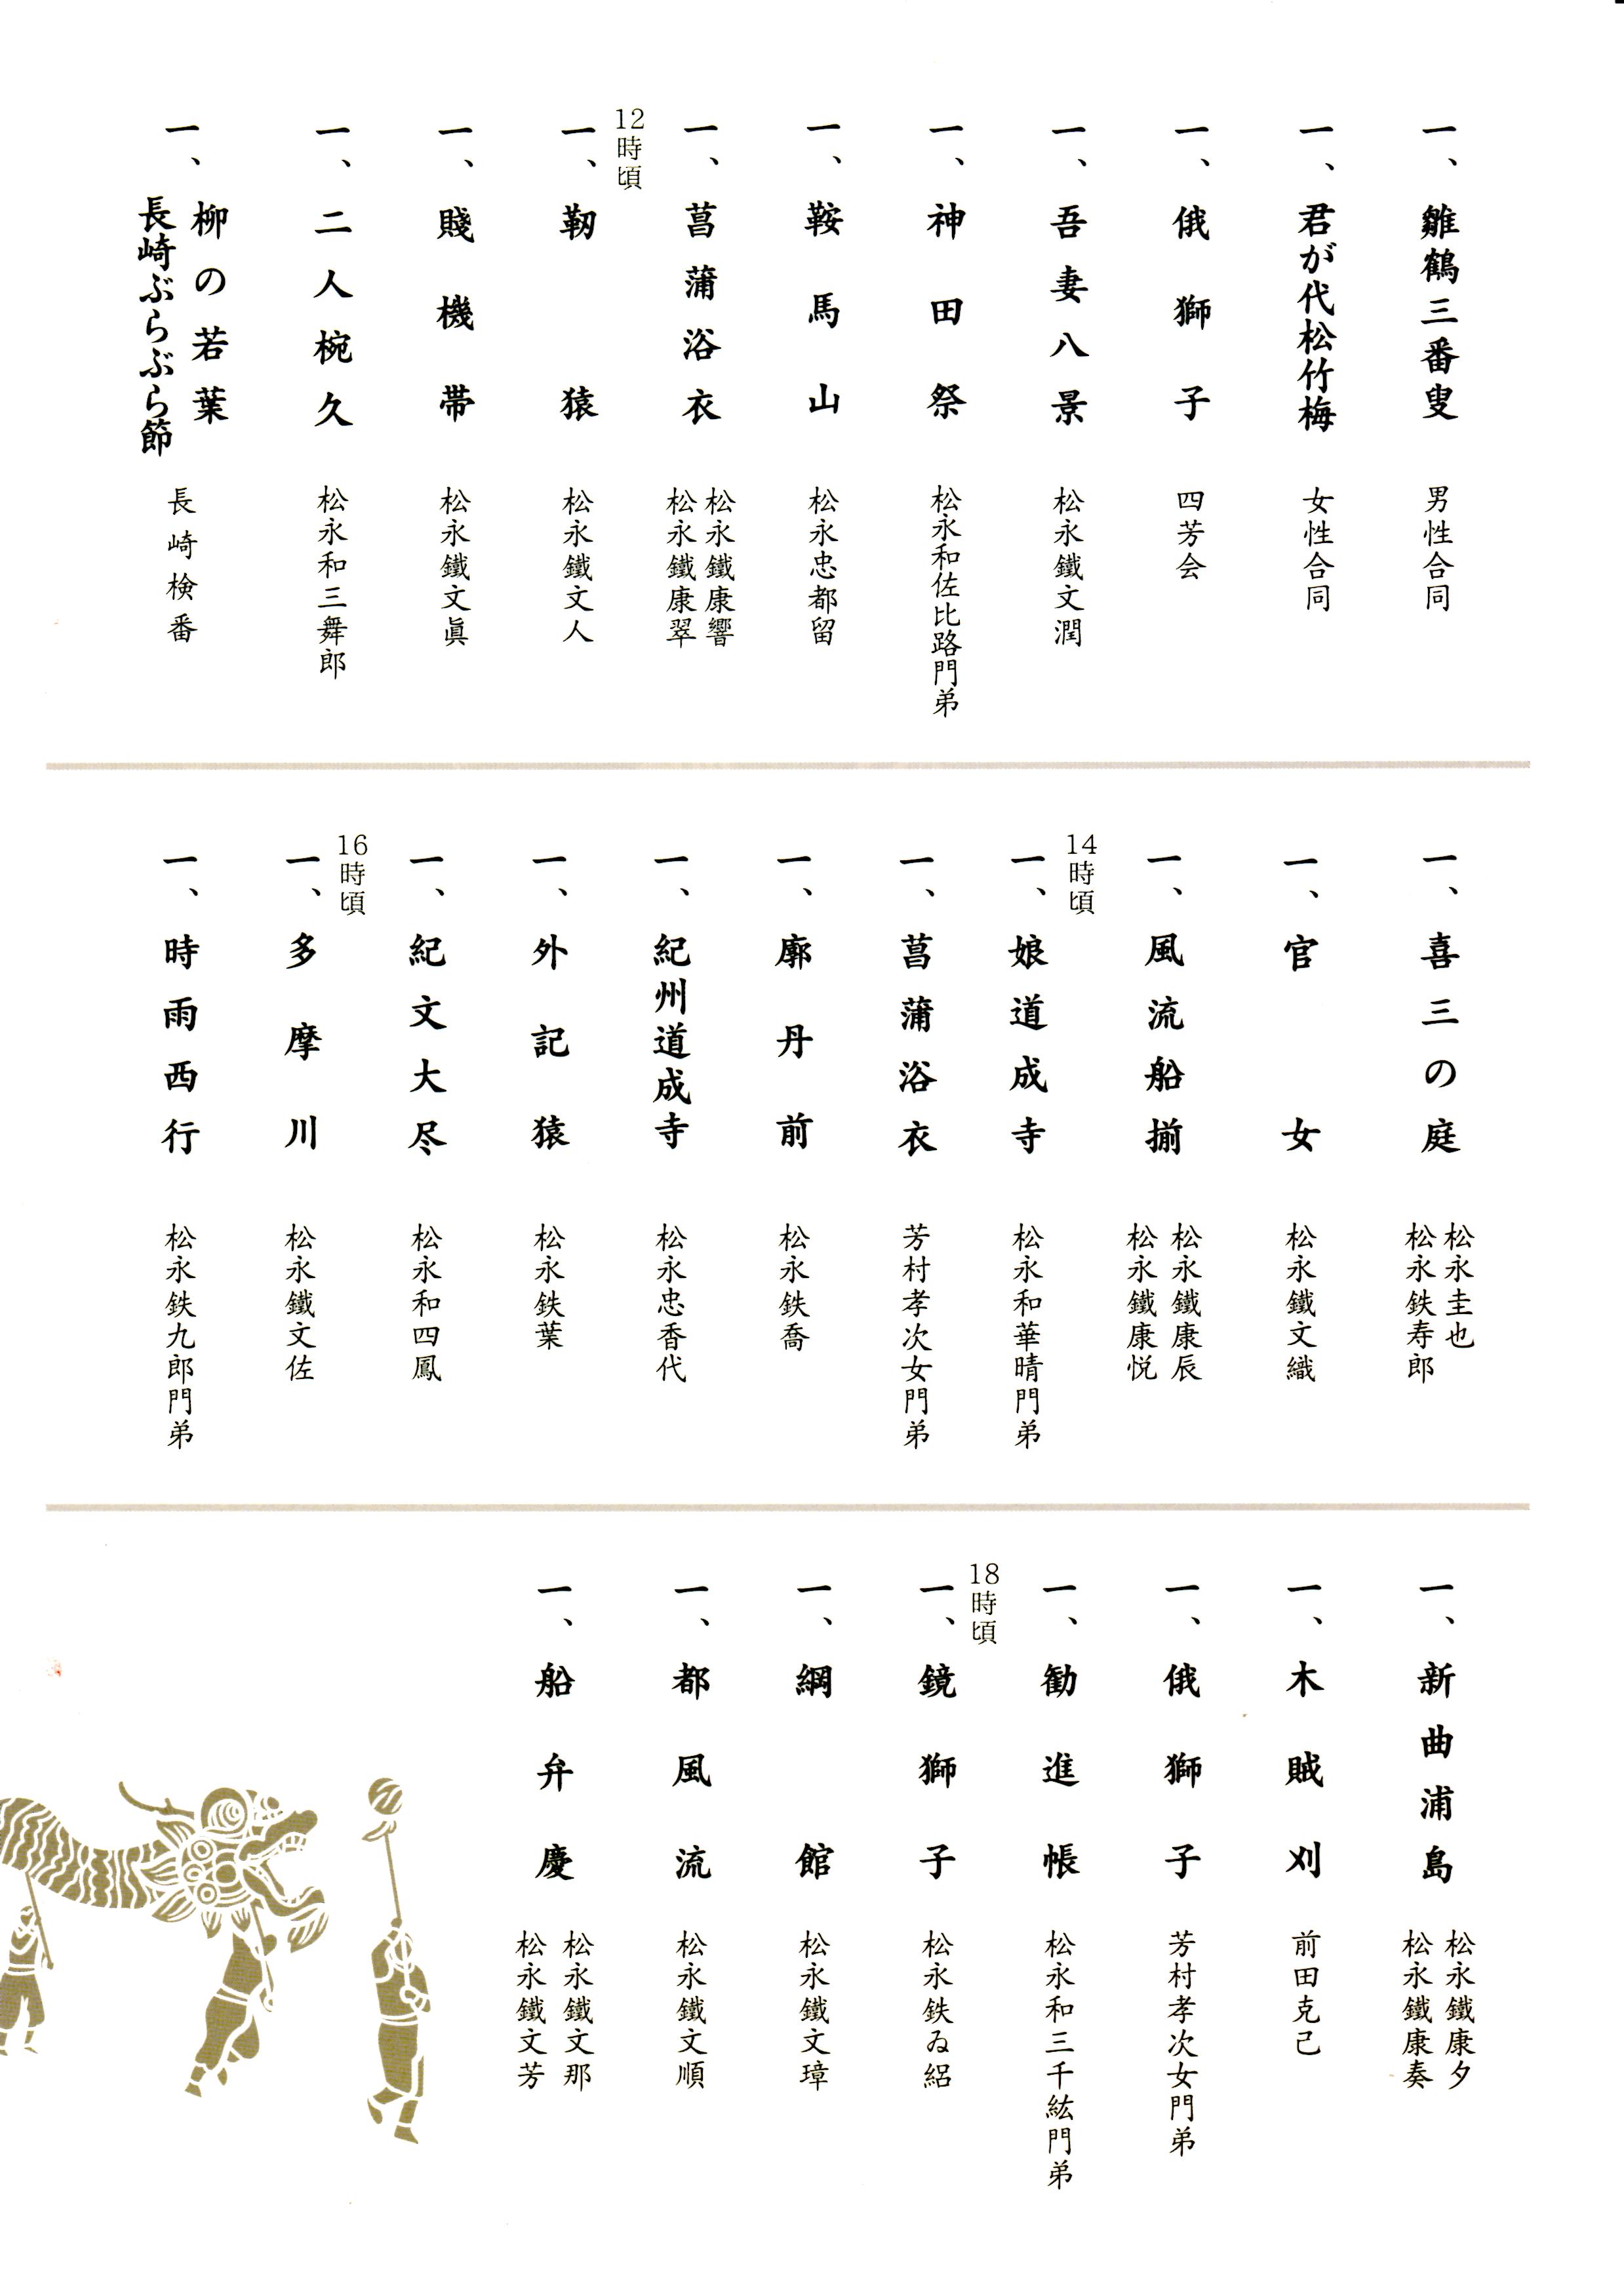 一、雛鶴三番叟 男性合同
一、君が代松竹梅 女性合同
一、俄獅子 四芳会
一、吾妻八景 松永鐵文潤
一、神田祭 松永和佐比路門弟
一、鞍馬山 松永忠都留
一、菖蒲浴衣 松永鐵康響
松永鐵康翠
12時頃
一、靭猿 松永鐵文人
一、賤機帯 松永鐵文眞
一、二人椀久 松永和三舞郎
一、柳の若葉
長崎ぶらぶら節 長崎検番
一、喜三の庭 松永圭也
松永鉄寿郎
一、官女 松永鐵文織
一、風流船揃 松永鐵康辰
松永鐵康悦
14時頃
一、娘道成寺 松永和華晴門弟
一、菖蒲浴衣 芳村孝次女門弟
一、廓丹前 松永鉄喬
一、紀州道成寺 松永忠香代
一、外記猿 松永鉄葉
一、紀文大尽 松永和四鳳
16時頃
一、多摩川 松永鐵文佐
一、時雨西行 松永鉄九郎門弟
一、新曲浦島 松永鐵康夕
松永鐵康奏
一、木賊刈 前田克己
一、俄獅子 芳村孝次女門弟
一、勧進帳 松永和三千紘門弟
18時頃
一、鏡獅子 松永鉄ゐ絽
一、綱館 松永鐵文璋
一、都風流 松永鐵文順
一、船弁慶 松永鐵文那
松永鐵文芳